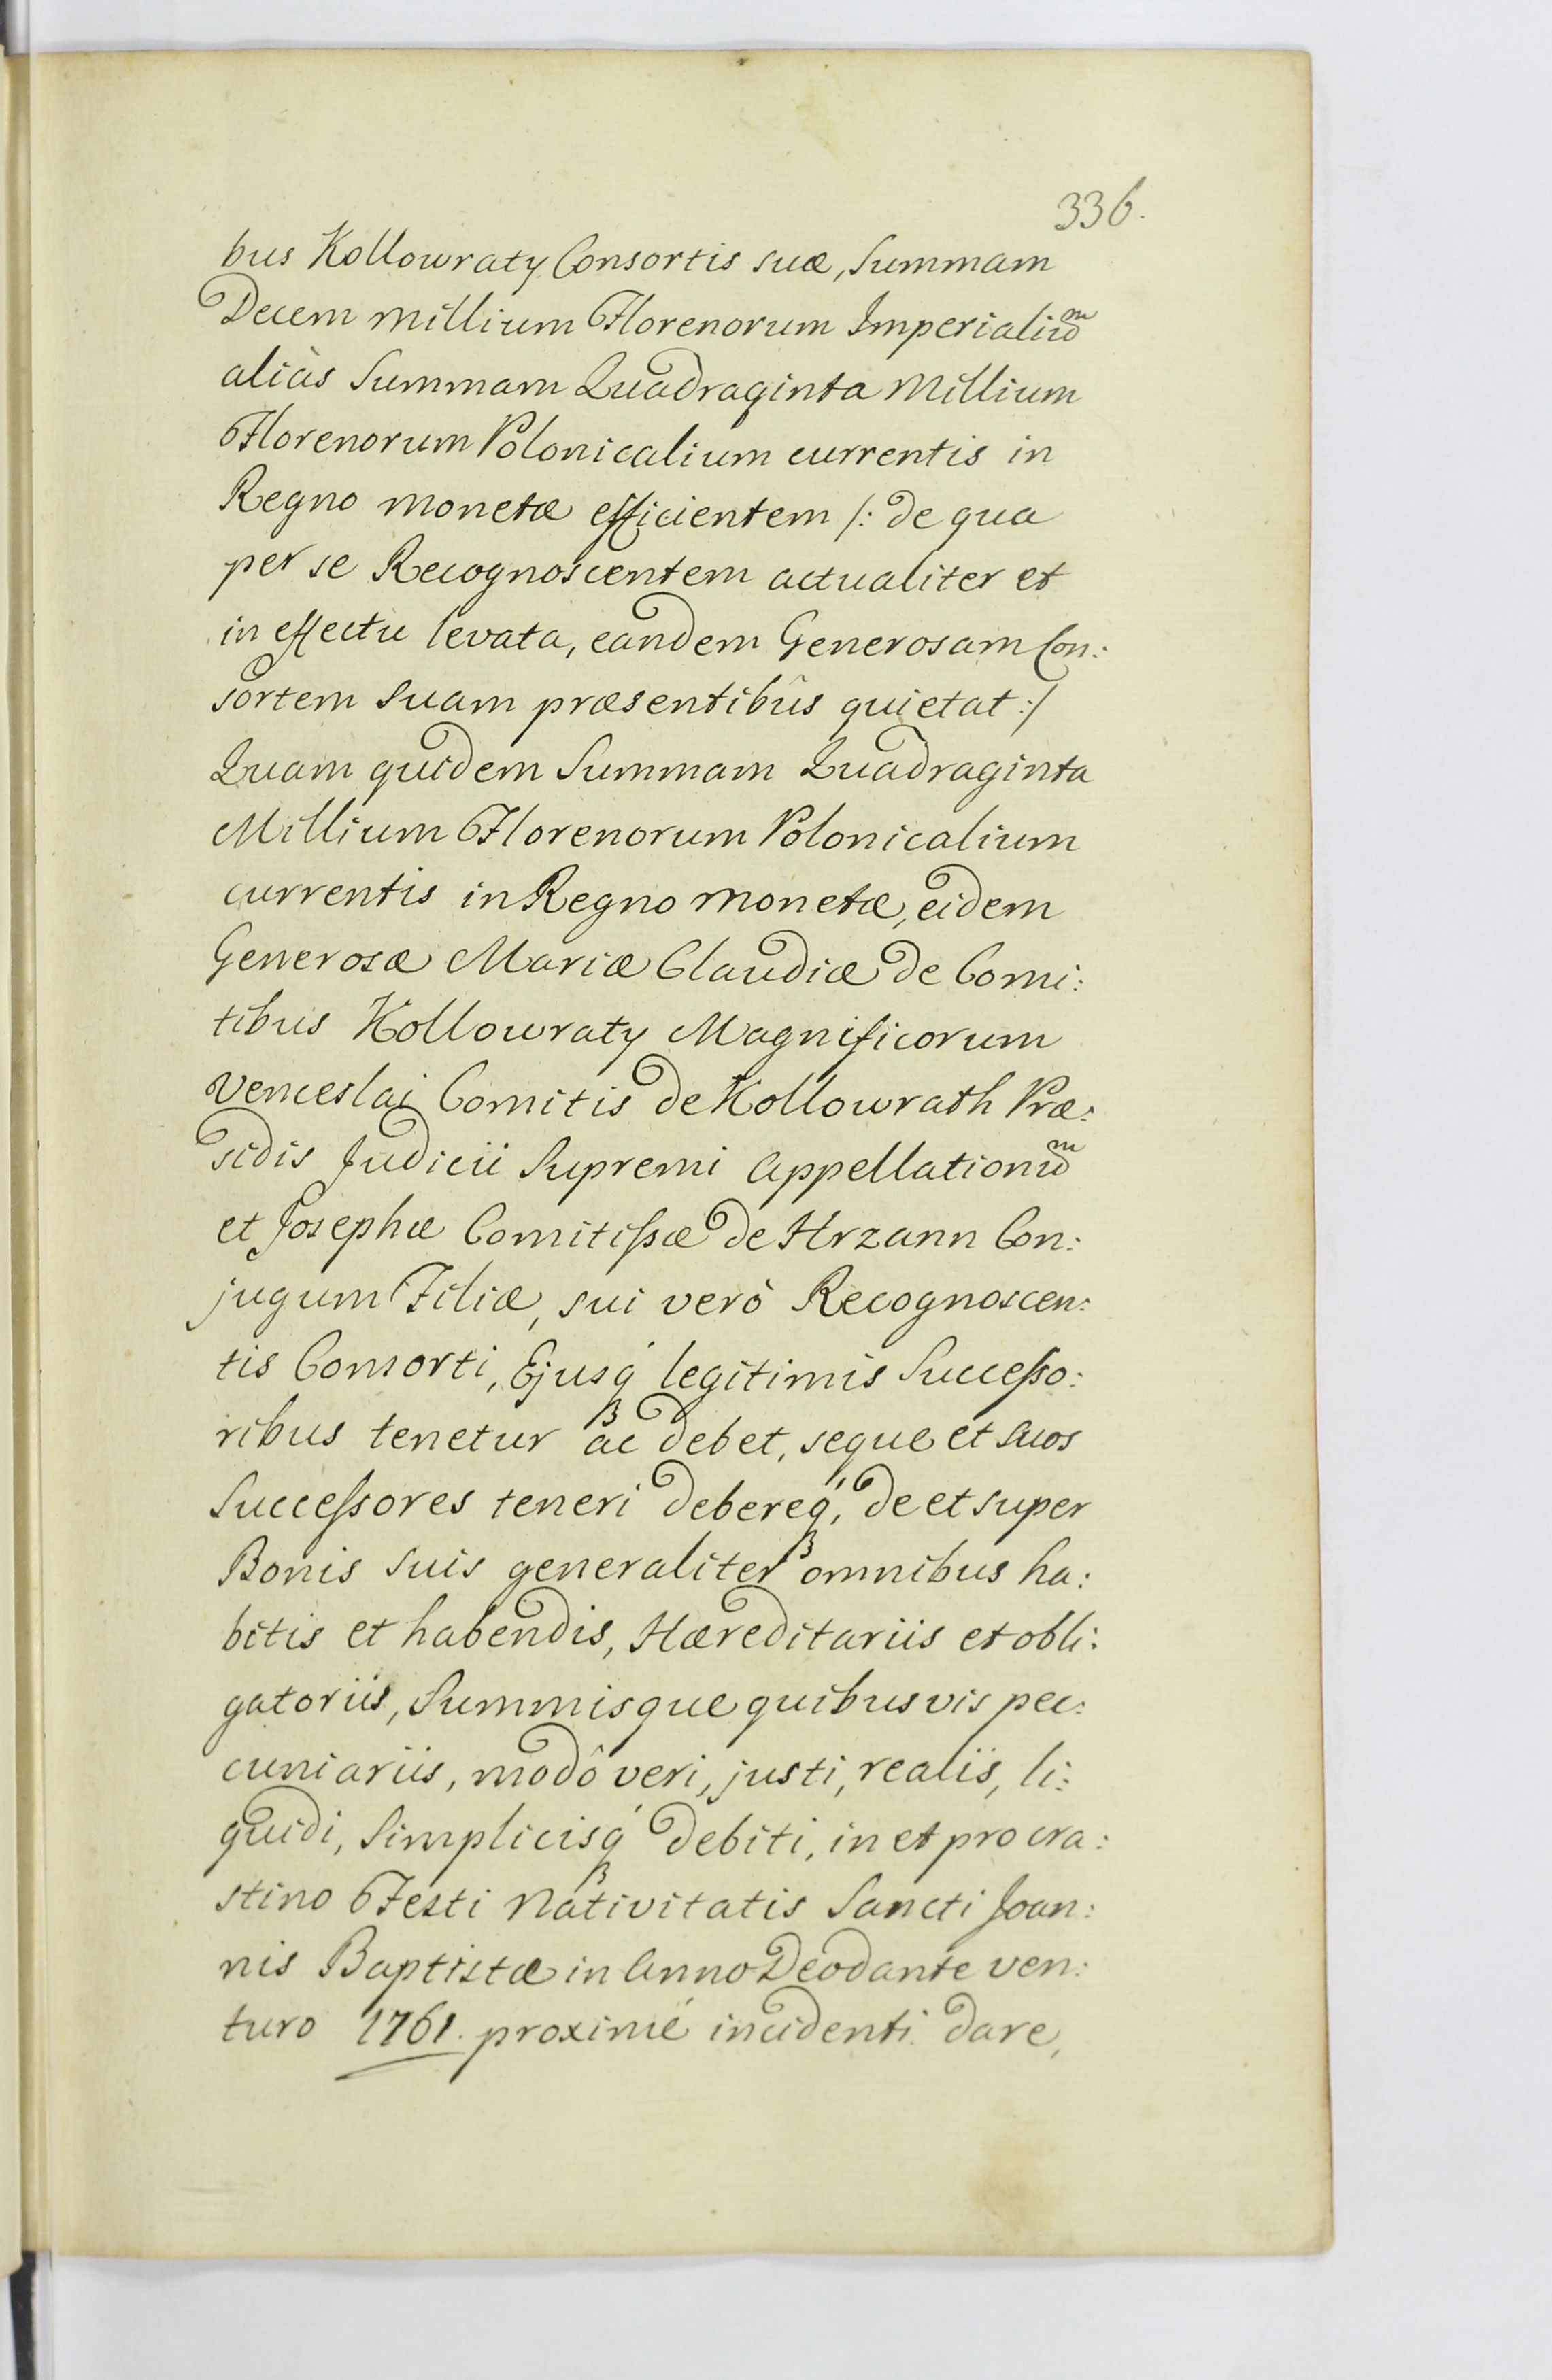 336.
bus Kollowraty Consortis suæ, Summam
Decem millium Florenorum Imperialiũm
aliàs Summam Quadraginta Millium
Florenorum Polonicalium currentis in
Regno monetæ efficientem /: de qua
per se Recognoscentem actualiter et
in effectu levata, eandem Generosam Con:
sortem Suam præsentibûs quietat :/
Quam quidem Summam Quadraginta
Millium Florenorum Polonicalium
currentis in Regno monetæ, eidem
Generosæ Mariæ Claudiæ de Comi:
tibus Kollowraty Magnificorum
Venceslai Comitis de Kollowrath Præ:
sidis Judicii Supremi Appellationũm
et Josephæ Comitiſsæ de Hrzann Con:
jugum Filiæ, sui verò Recognoscen:
tis Consorti, Ejusq́ꝫ legitimis Succeſso:
ribus tenetur ac debet, seque et suos
Succeſsores teneri debereq́ꝫ, de et super
Bonis suis generaliter omnibus ha:
bitis et habendis, Hæreditariis et obli:
gatoriis, Summisque quibusvis pec:
cuniariis, modô veri, justi, realis, li:
quidi, Simplicisq́ꝫ debiti, in et pro cra:
stino Festi Nativitatis Sancti Joan:
nis Baptistæ in Anno Deo dante ven:
turo 1761. proximé incidenti dare,